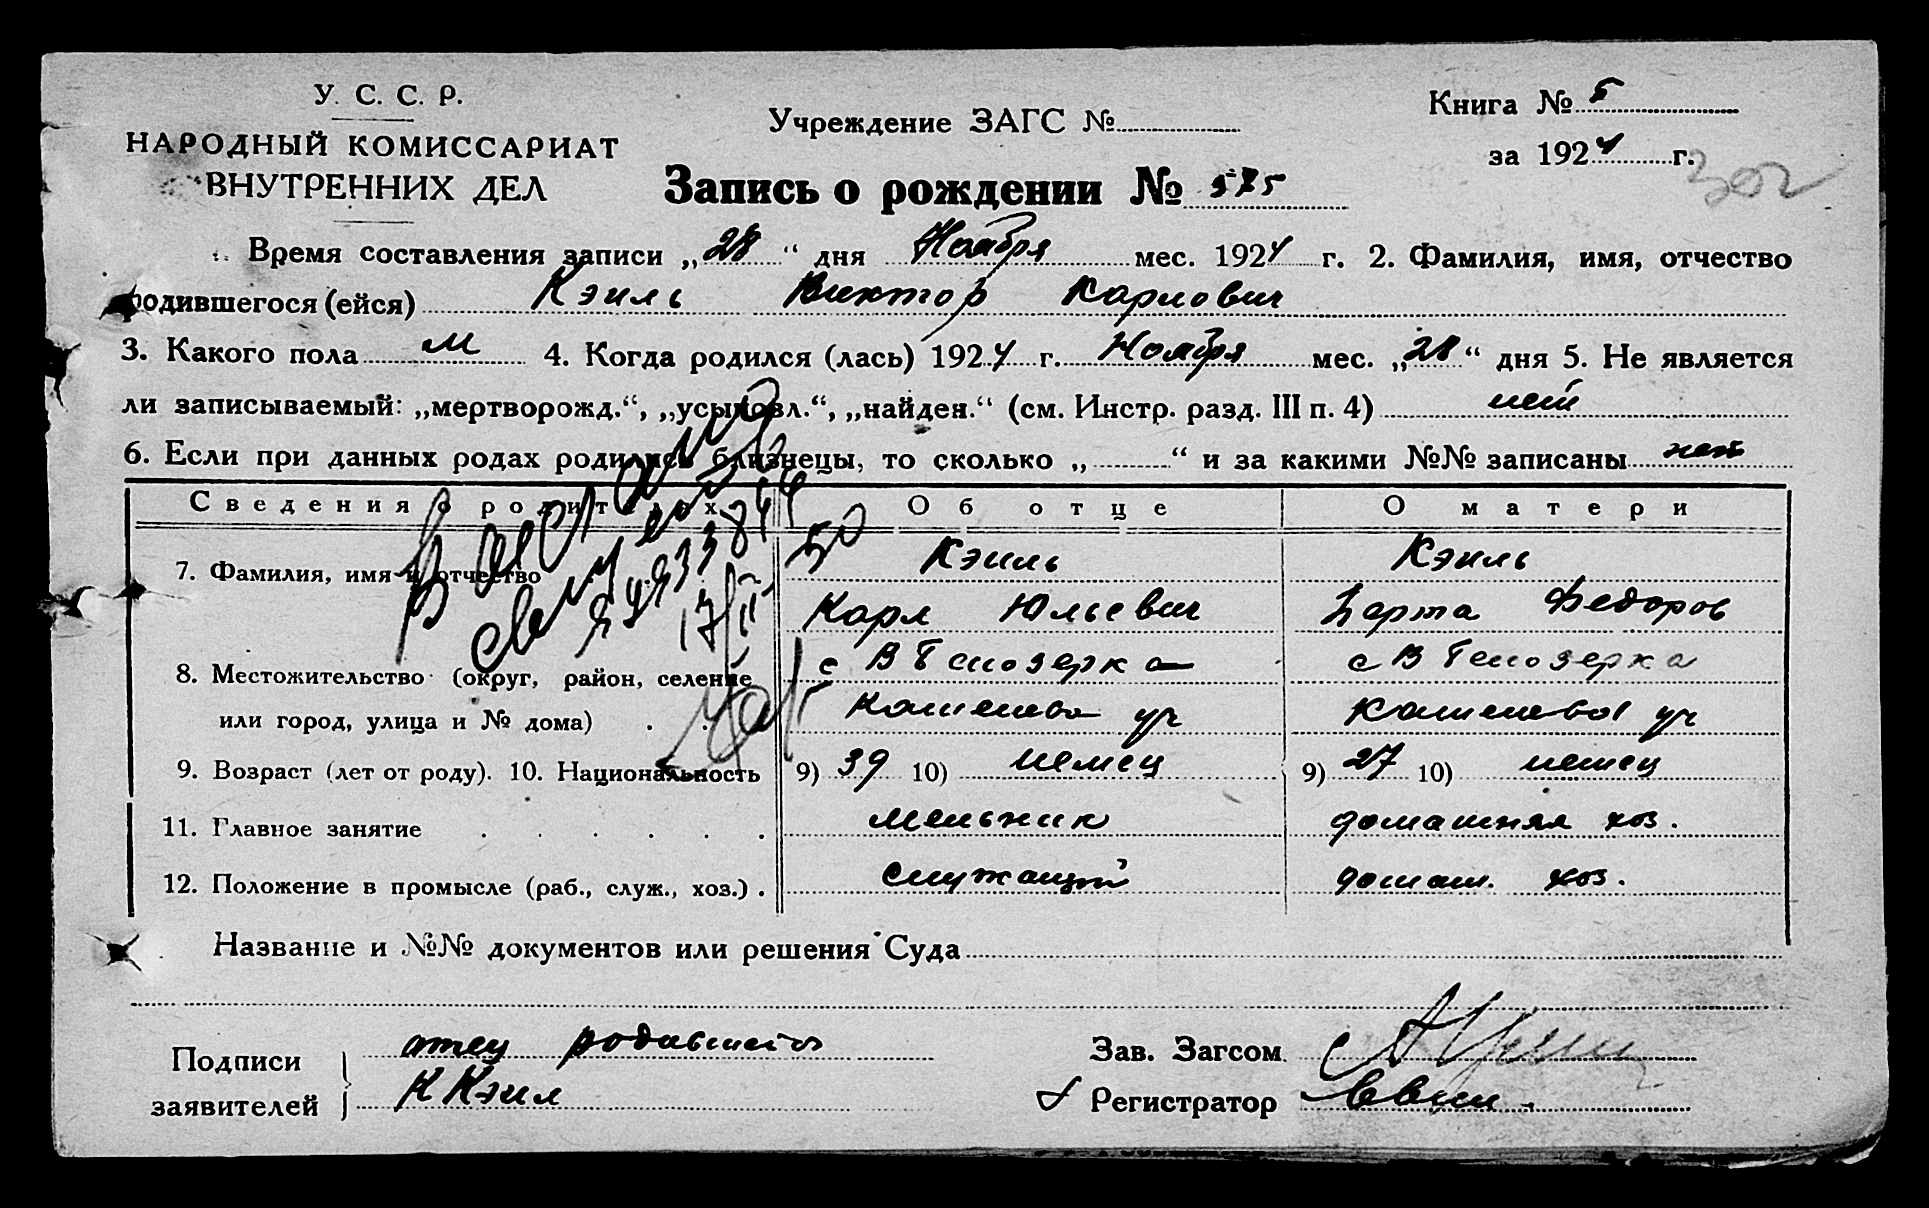 У. С. С. Р.
НАРОДНЫЙ КОМИССАРИАТ
ВНУТРЕННИХ ДЕЛ
Учреждение ЗАГС №
Книга № 5
за 1924 г.
302
Запись о рождении № 575
Время составления записи „28“ дня Ноября мес. 1924 г. 2. Фамилия, имя, отчество
родившегося (ейся) Кэиль Виктор Карлович
3. Какого пола м 4. Когда родился (лась) 1924 г. Ноября мес. „28“ дня 5. Не является
ли записываемый: „мертворожд.“, „усыновл.“, „найден.“ (см. Инстр. разд. III п. 4) нет
6. Если при данных родах родились близнецы, то сколько „ “ и за какими №№ записаны нет
Сведения о родителях Об отце О матери
7. Фамилия, имя и отчество Кэиль Кэиль
Карл Юльевич Берта Федоров
8. Местожительство (округ, район, селение с В Белозерка с В Белозерка
или город, улица и № дома) Камешева уч Камешева уч
9. Возраст (лет от роду). 10. Национальность 9) 39 10) немец 9) 27 10) немец
11. Главное занятие мельник домашняя хоз.
12. Положение в промысле (раб., служ., хоз.) служащий домаш. хоз.
Название и №№ документов или решения Суда
Подписи заявителей отец родившегося
К Кэил
Зав. Загсом
Регистратор